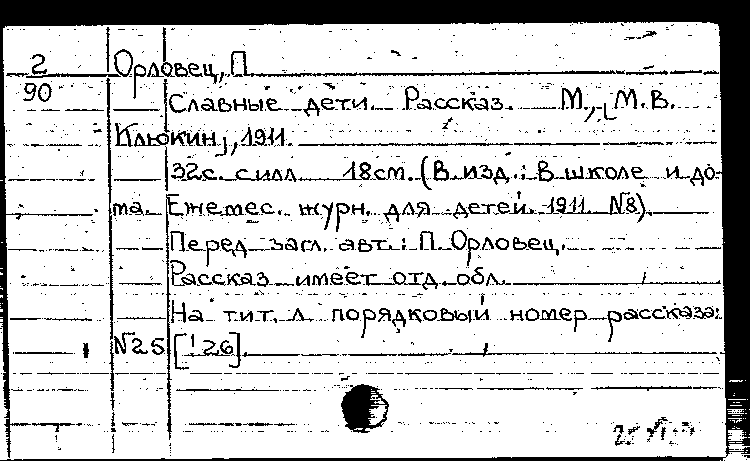 2
90
Орловец, П
Славные дети. Рассказ. М., [М.В.
Клюкин], 1911.
32с. с илл. 18см. (В изд.: В школе и до-
ма. Ежемес. журн. для детей. 1911. №8).
Перед загл. авт.: П. Орловец.
Рассказ имеет отд. обл.
На тит. л. порядковый номер рассказа:
№25 [!26].